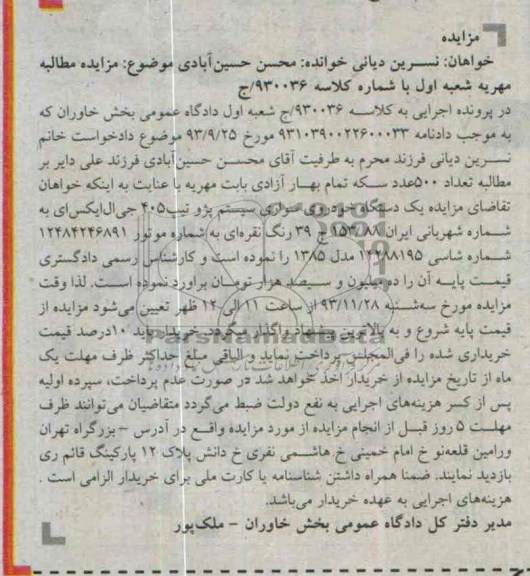 مزایده
خواهان: نسرین دیانی خوانده: محسن حسین‌آبادی موضوع: مزایده مطالبه
مهریه شعبه اول با شماره کلاسه ۹۳۰۰۳۶/ج
در پرونده اجرایی به کلاسه ۹۳۰۰۳۶/ج شعبه اول دادگاه عمومی بخش خاوران که
به موجب دادنامه ۹۳۱۰۳۹۰۰۲۲۶۰۰۰۳۳ مورخ ۹۳/۹/۲۵ موضوع دادخواست خانم
نسرین دیانی فرزند محرم به طرفیت آقای محسن حسین‌آبادی فرزند علی دایر بر
مطالبه تعداد ۵۰۰عدد سکه تمام بهار آزادی بابت مهریه با عنایت به اینکه خواهان
تقاضای مزایده یک دستگاه خودروی سواری سیستم پژو تیپ۴۰۵ جی‌ال‌ایکس‌ای به
شماره شهربانی ایران ۸۸/۱۵۳ ج ۳۹ رنگ نقره‌ای به شماره موتور ۱۲۴۸۴۲۴۶۸۹۱
شماره شاسی ۱۴۲۸۸۱۹۵ مدل ۱۳۸۵ را نموده است و کارشناس رسمی دادگستری
قیمت پایه آن را ده میلیون و سیصد هزار تومان براورد نموده است. لذا وقت
مزایده مورخ سه‌شنبه ۹۳/۱۱/۲۸ از ساعت ۱۱ الی ۱۲ ظهر تعیین می‌شود مزایده از
قیمت پایه شروع و به بالاترین پیشنهاد واگذار میگردد. خریدار باید ۱۰درصد قیمت
خریداری شده را فی‌المجلس پرداخت نماید و الباقی مبلغ حداکثر ظرف مهلت یک
ماه از تاریخ مزایده از خریدار اخذ خواهد شد در صورت عدم پرداخت، سپرده اولیه
پس از کسر هزینه‌های اجرایی به نفع دولت ضبط می‌گردد متقاضیان می‌توانند ظرف
مهلت ۵ روز قبل از انجام مزایده از مورد مزایده واقع در آدرس – بزرگراه تهران
ورامین قلعه‌نو خ امام خمینی خ هاشمی نفری خ دانش پلاک ۱۲ پارکینگ قائم ری
بازدید نمایند. ضمنا همراه داشتن شناسنامه یا کارت ملی برای خریدار الزامی است .
هزینه‌های اجرایی به عهده خریدار می‌باشد.
مدیر دفتر کل دادگاه عمومی بخش خاوران – ملک‌پور
ParsNamadData